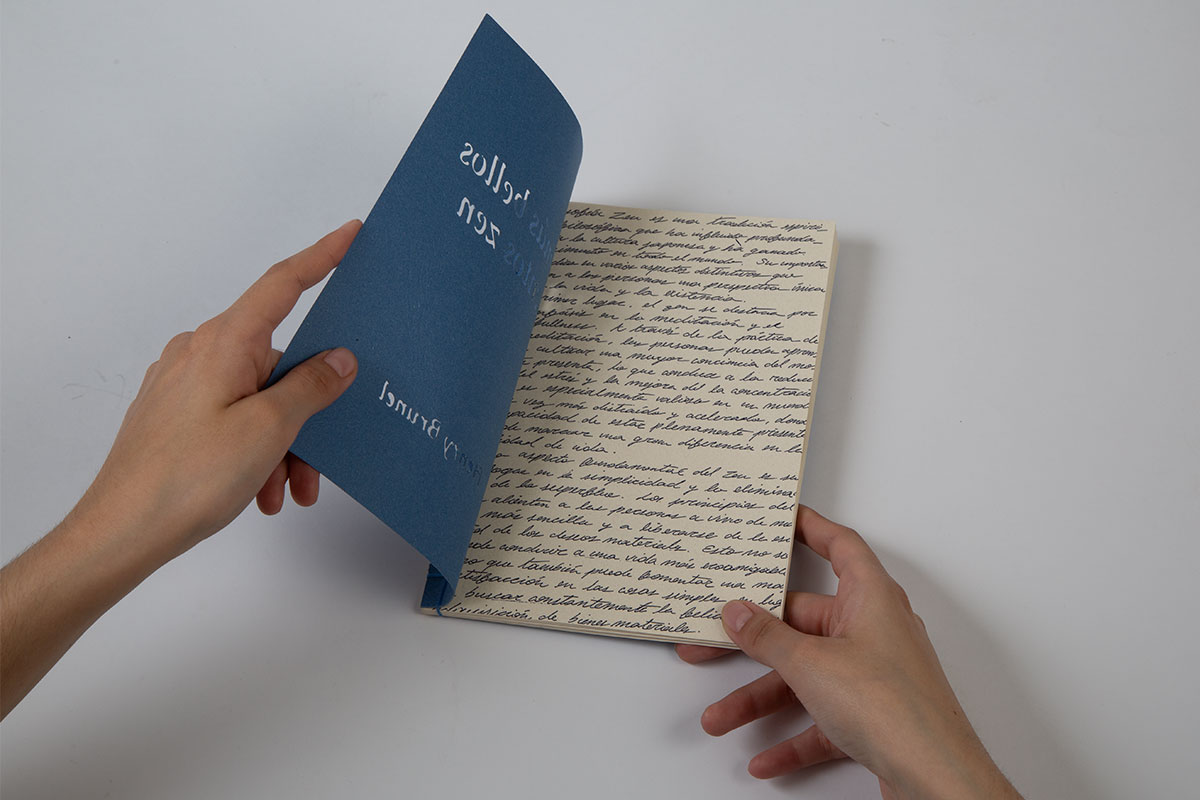 bellos
zen
Henry Brunel
Zen es una tradición espiri-
filosófica que ha influido profunda-
la cultura japonesa y ha ganado
en todo el mundo. Su importan
en varios aspectos distintivos que
a las personas una perspectiva única
la vida y la existencia.
lugar, el zen se destaca por
en la meditación y el
A través de la práctica de
meditación, las personas pueden apren
cultivar una mayor conciencia del mo
presente, lo que conduce a la reduc
el estrés y la mejora del la concentració
es especialmente valioso en un mundo
vez más distraído y acelerado, dond
capacidad de estar plenamente present
de marcar una gran diferencia en la
de vida.
aspecto fundamental del Zen es su
en la simplicidad y la elimina
de lo superfluo. Los principios de
alientan a las personas a vivir de ma
más sencilla y a liberarse de la es
de los deseos materiales. Esto no so
conducir a una vida más ecoamigable
que también puede fomentar una ma
satisfacción en las cosas simples
buscar constantemente la felic
de bienes materiales.